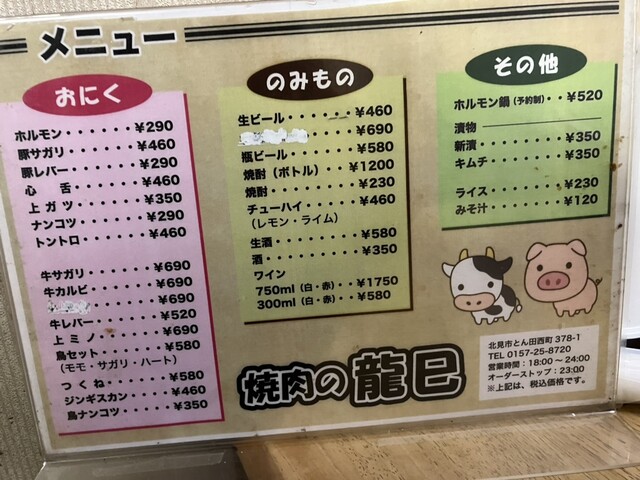 メニュー
おにく
ホルモン・・・・・・・¥290
豚サガリ・・・・・・・¥460
豚レバー・・・・・・・¥290
心　舌・・・・・・・・¥460
上ガツ・・・・・・・・¥350
ナンコツ・・・・・・・¥290
トントロ・・・・・・・¥460
牛サガリ・・・・・・・¥690
牛カルビ・・・・・・・¥690
・・・・・・・¥690
牛レバー・・・・・・・¥520
上ミノ・・・・・・・・¥690
鳥セット・・・・・・・¥580
（モモ・サガリ・ハート）
つくね・・・・・・・・¥580
ジンギスカン・・・・・¥460
鳥ナンコツ・・・・・・¥350
のみもの
生ビール・・・・・・¥460
・・・・・・¥690
瓶ビール・・・・・・¥580
焼酎（ボトル）・・¥1200
焼酎・・・・・・・・¥230
チューハイ・・・・・¥460
（レモン・ライム）
生酒・・・・・・・・¥580
酒・・・・・・・・・¥350
ワイン
750ml（白・赤）・・¥1750
300ml（白・赤）・・¥580
その他
ホルモン鍋（予約制）・・¥520
漬物
新漬・・・・・・・・¥350
キムチ・・・・・・・¥350
ライス・・・・・・・¥230
みそ汁・・・・・・・¥120
焼肉の龍巳
北見市とん田西町 378-1
TEL 0157-25-8720
営業時間：18:00〜24:00
オーダーストップ：23:00
※上記は、税込価格です。